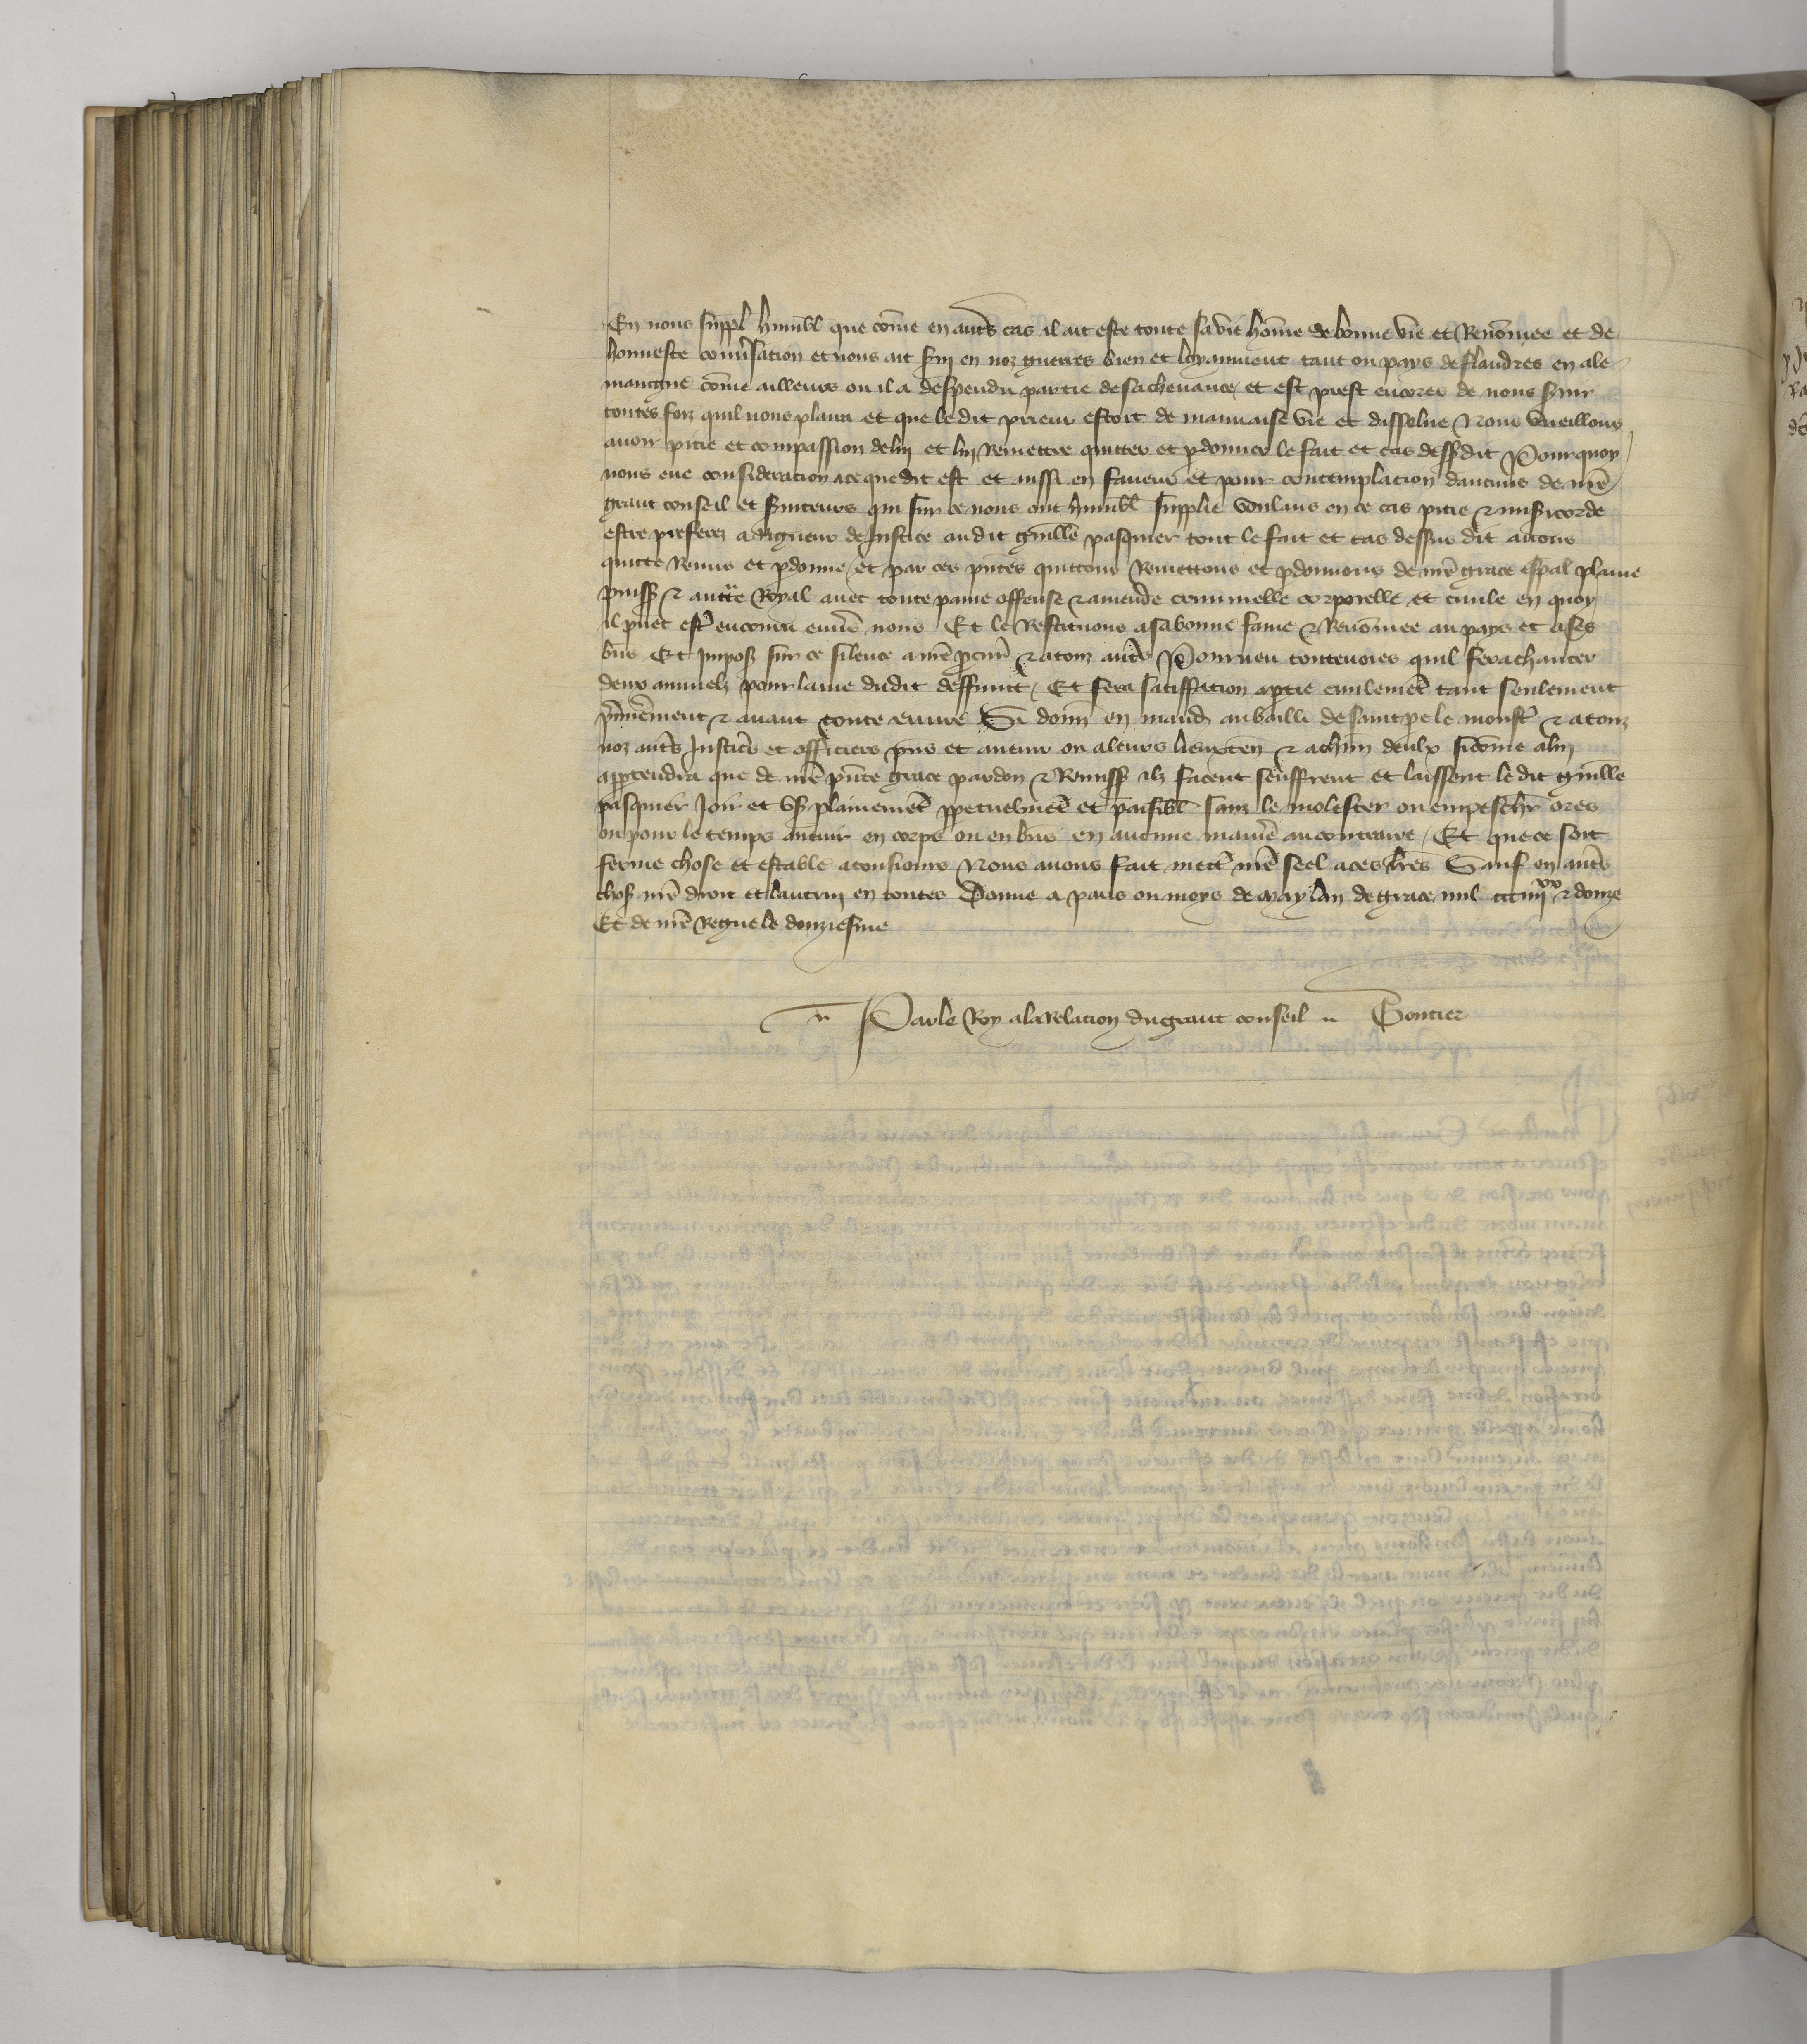 En nous suppl humbl que cōme en autˢ cas il ait este toute sa vie hōme de bonne vie et Renōmee et de
honneste conuˢsation et nous ait sˢui en noz guerres bien et loyaument tant ou pays de flandres en ale
maingne cōme ailleurs ou il a despendu partie de sa cheuance / et est prest encores de nous sˢuir
toutes foiz quil nous plaira et que le dit prieur estoit de mauuaise vie et dissolue Nous vueillons
auoir pitie et compassion de luy et luy Remettre quitter et pdonner le fait et cas dessˢdit Pourquoy
nous eue consideracion a ce que dit est et aussi en faueur et pour contemplacion daucuns de nr̄e
grant conseil et sˢuiteurs qui sur ce nous ont humbl supplie voulans en ce cas pitie & misˢicorde
estre preferez a Rigueur de Justice au dit guillē pasquier tout le fait et cas dessus dit auons
quitte Remis et pdonne / et par ces pn̄tes quittons Remettons et pdonnons de nr̄e grace esp̄al plaine
puissˢ & autt̄e Royal auec toute paine offense & amende criminelle corporelle et ciuile en quoy
il puet estˢ encouru enuˢs nous Et le Restituons a sa bonne fame & Renōmee au pays et a ses
biēs Et Imposˢ sur ce silence a nr̄e pcurˢ & a touz autˢs Pourueu toutesuoies quil fera chanter
deux annuelz pour lame dudit deffunct / Et fera satiffacion a ptie ciuilemēt tant seulement
pˢmieˢement & auant toute euure Si donn en mand au bailli de saint pe le moustˢ & a touz
noz autˢs Justicˢs et officiers pn̄s et auenir ou a leurs lieuxten̄ & a chūn deulx sicōme a luy
apptendra que de nr̄e pn̄te grace pardon & Remissˢ ilz facent seuffrent et laissent le dit guille
pasquier Joir et vsˢ plainemēt ppetuelmēt et paisibl sanz le molester ou empeschˢ ores
ou pour le temps auenir en corps ou en biēs en aucune maniēe au contraire / Et que ce soit
ferme chose et estable a tousiours Nous auons fait mettˢ nr̄e seel a ces lr̄es Sauf en autˢs
chosˢ nr̄e droit et lautruy en toutes Donne a paris ou moys de may lan de grace mil ccc iiijˣˣ & douze
Et de nr̄e Regne le douziesme
Par le Roy a la relacion du grant conseil .. Gontier